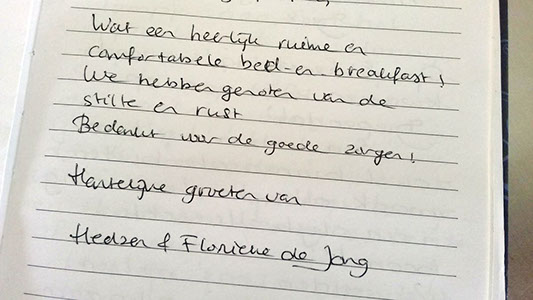 Wat een heerlijk ruime en
comfortabele bed-en breakfast!
We hebben genoten van de
stilte en rust
Bedankt voor de goede zorgen!
Hartelijke groeten van
Hedzer & Florieke de Jong